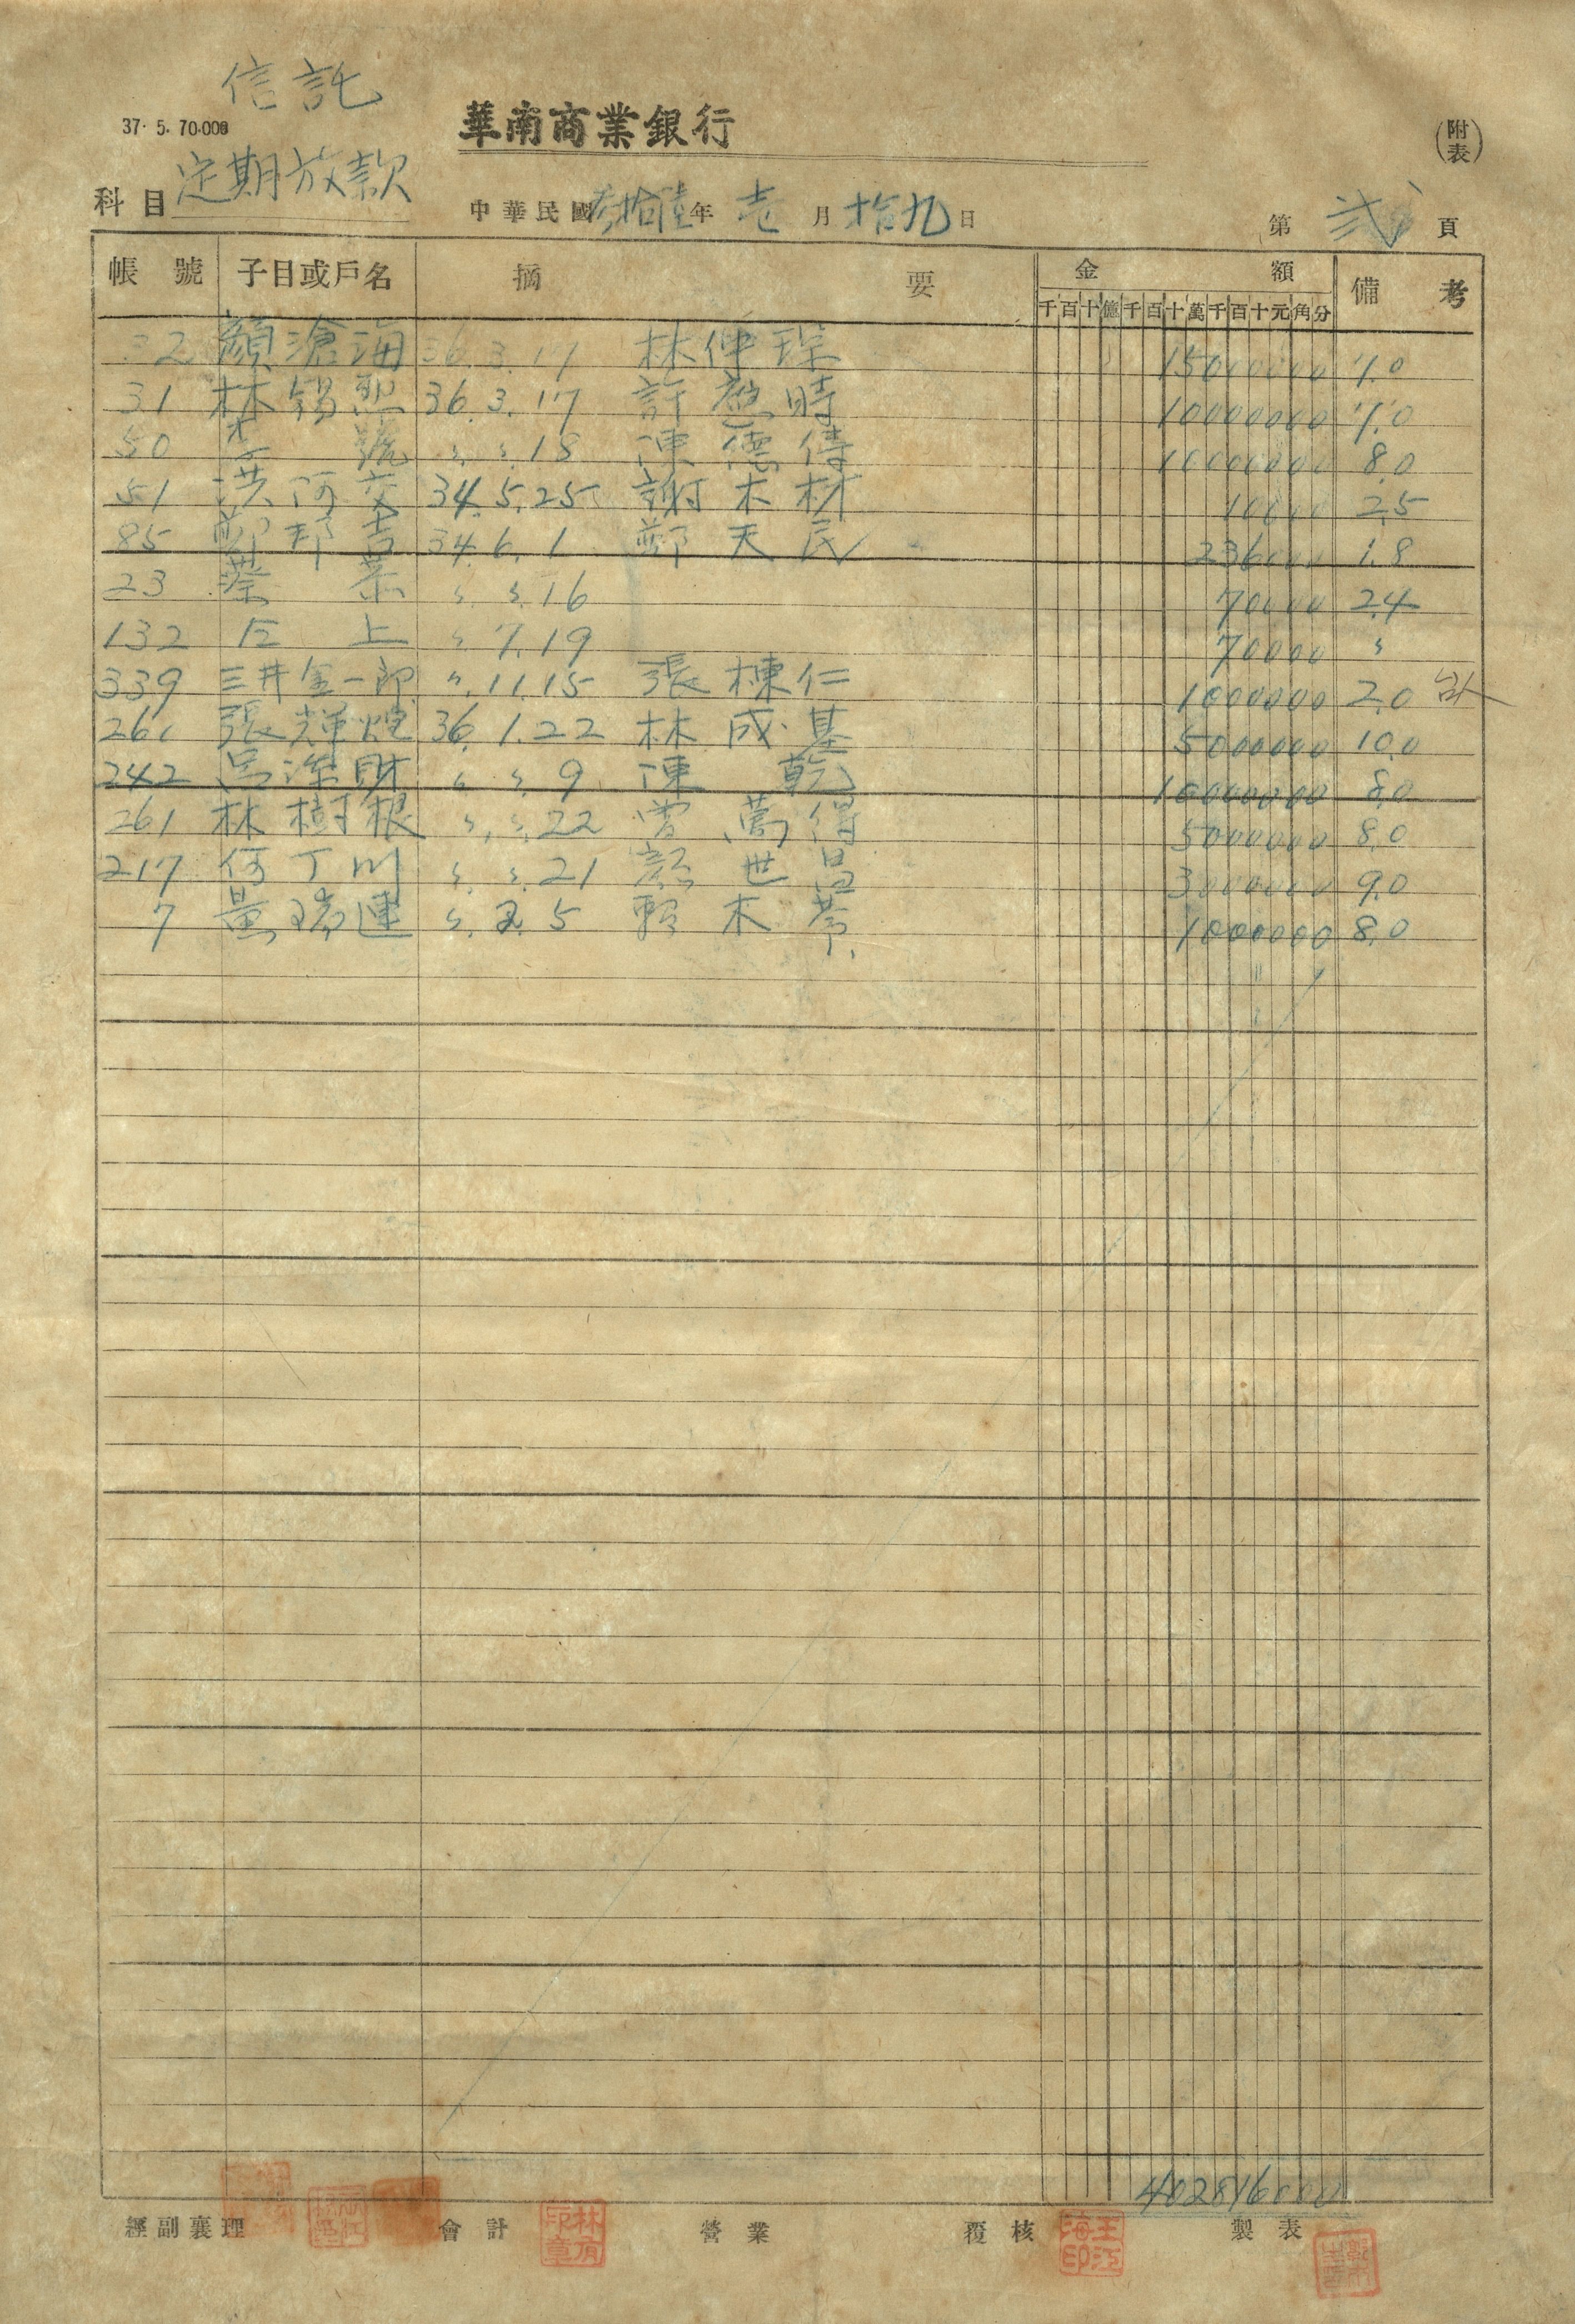 信託
37. 5. 70.000
華南商業銀行
(附表)
科目 定期放款
中華民國 參拾陸年 壱月 拾九日
第 弍 頁
帳號 子目或戶名 摘要 金額 備考
千百十億千百十萬千百十元角分
32 顏滄海 36.3.17 林 15000000 7.0
31 林錫熙 36.3.17 許 時 10000000 7.0
50 號 〃.〃.18 陳德偉 10000000 8.0
51 洪河交 34.5.25 謝木材 10000 2.5
85 鄭邦吉 34.6.1 鄭天民 236000 1.8
23 蔡 〃.〃.16 70000 2.4
132 仝上 〃.7.19 70000 〃
339 三井金一郎 〃.11.15 張棟仁 1000000 2.0
261 張輝煌 36.1.22 林成基 5000000 10.0
242 呂深財 〃.〃.9 陳乾 10000000 8.0
261 林樹根 〃.〃.22 曾萬得 5000000 8.0
217 何丁川 〃.〃.21 顏世昌 3000000 9.0
7 黃瑞連 〃.2.5 賴木 1000000 8.0
402816000
經副襄理 會計 營業 覆核 製表
林有印章
王江海印